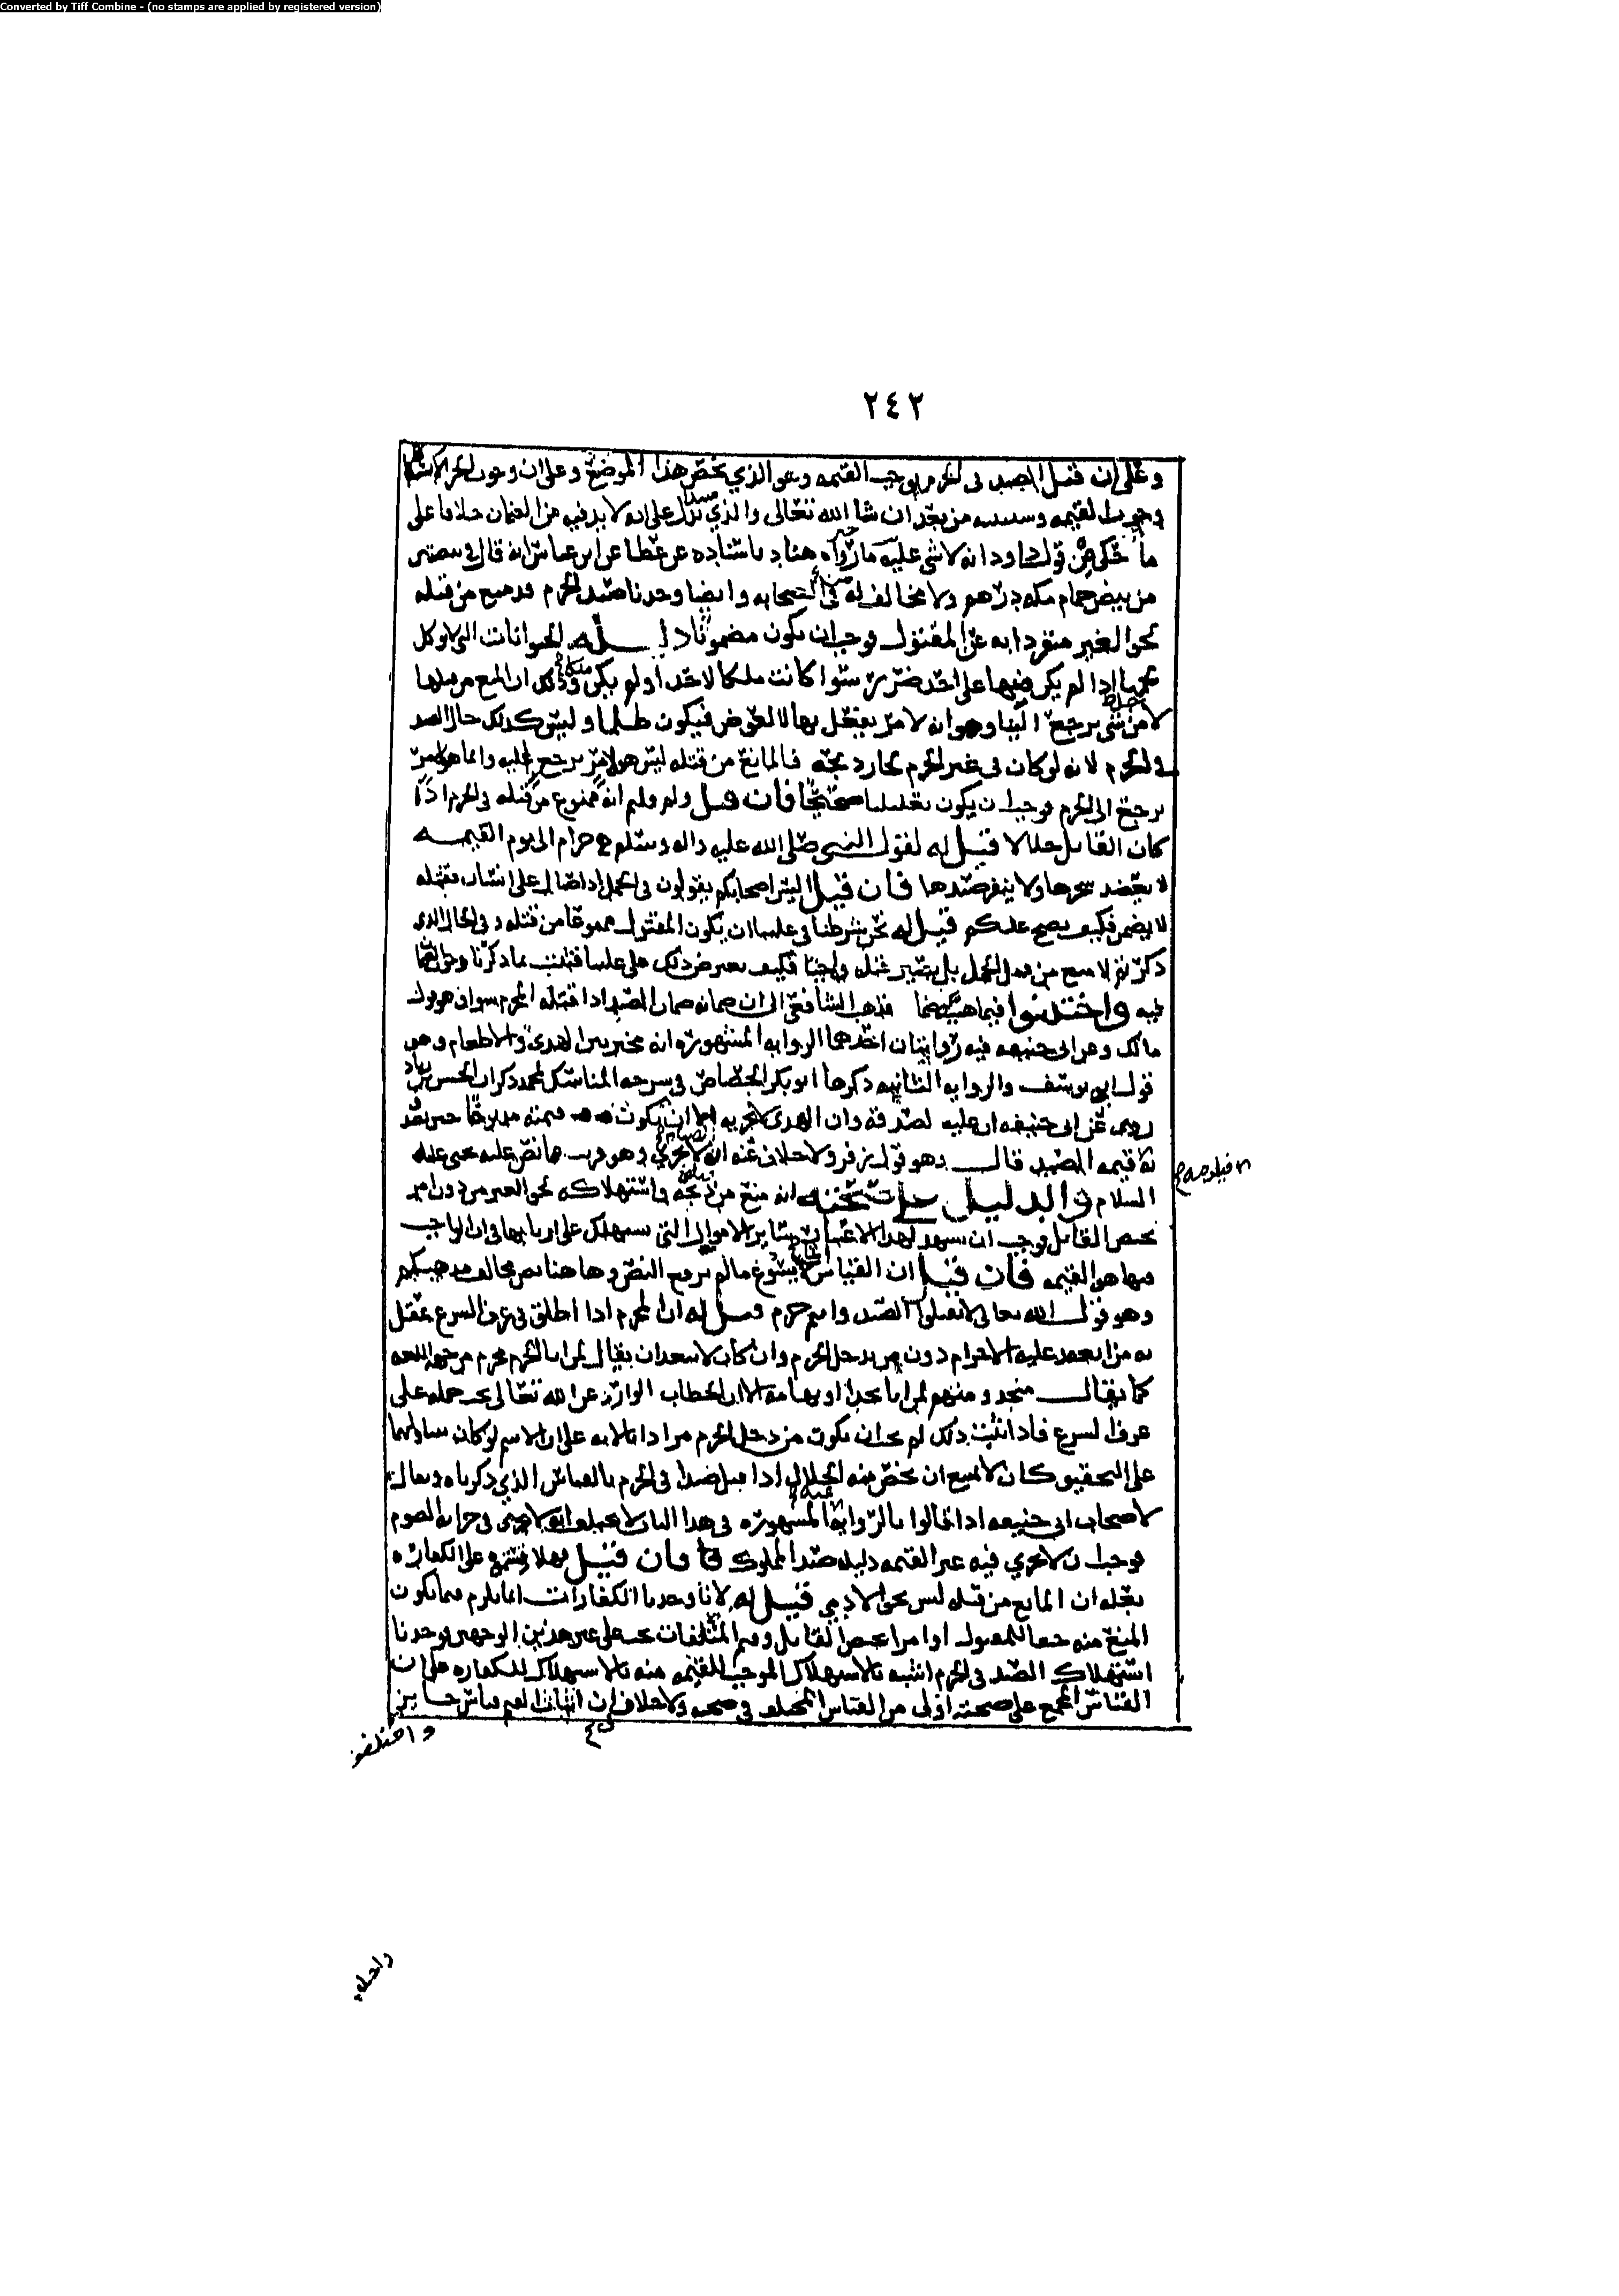 Converted by Tiff Combine - (no stamps are applied by registered version)
٢٤٢
وعلى ان قتل الصيد في الحرم يوجب القيمه وهو الذي يخص هذا الموضع وعلى ان
وجوب القيمه وسنبينه من بعد ان شا الله تعالى والذي يدل على انه لا بد فيه من الضمان خلافا على
ما حكي من قول داود انه لا شي عليه ما رواه هناد باسناده عن عطا عن ابن عباس انه قال في بيضتين
من بيض حمام مكه درهم ولا مخالف له في الصحابه وايضا وجدنا صيد الحرم قد منع من قتله
لحق الغير منفردا به عن المقتول فوجب ان يكون مضمونا دليله الحيوانات التي لا يوكل
لحمها اذا لم يكن فيها على احد ضرر سوا كانت ملكا لاحد او لم يكن وذلك ان المنع من قتلها
لامر شي يرجع اليها وهو انه لا من يفعل بها لا لعوض فيكون ظلما وليس كذلك حال الصيد
في الحرم لانه لو كان في غير الحرم لجاز ذبحه فالمانع من قتله ليس هو لامر يرجع اليه وانما هو لامر
يرجع الى الحرم فوجب ان يكون تعليلنا صحيحا فان قيل ولم قلتم انه ممنوع من قتله في الحرم اذا
كان القاتل حلالا قيل له لقول النبي صلى الله عليه واله وسلم هو حرام الى يوم القيمه
لا يعضد شجرها ولا ينفر صيدها فان قيل اليس اصحابكم يقولون في الجمل اذا صال على انسان فقتله
لا يضمن فكيف يصح علتكم قيل له نحن شرطنا في علتنا ان يكون المقتول ممنوعا من قتله وفي الحال الذي
ذكرتم لا يمنع من قتل الجمل بل يصير قتله واجبا فكيف يعترض ذلك على علتنا فثبت بما ذكرنا وجوب الضمان
فيه واختلفوا فيما هيته فذهب الشافعي الى ان ضمانه ضمان الصيد اذا قتله المحرم سوا وهو قول
مالك وعن ابي حنيفه فيه روايتان احدهما الروايه المشهوره انه مخير بين الهدي والاطعام وهو
قول ابي يوسف والروايه الثانيه ذكرها ابو بكر الجصاص في شرحه المناسك لمحمد ذكر ان الحسن بن زياد
روى عن ابي حنيفه ان عليه الصدقه وان الهدي لا يجزيه الا ان يكون قيمته مذبوحا
قيمه الصيد قال وهو قول زفر ولا خلاف عنه ان الصيام لا يجزي وهو قريب مما نص عليه يحيى عليه
السلام والدليل على صحته انه منع من ذبحه واستهلاكه لحق الغير من دون امر
يخص القاتل فوجب ان يشهد لهذا الاعتبار سائر الاموال التي تستهلك على اربابها في ان الواجب
فيها هو القيمه فان قيل ان القياس لا يسوغ ما لم يرفع النص وها هنا نص يخالف مذهبكم
وهو قول الله تعالى لا تقتلوا الصيد وانتم حرم قيل له ان المحرم اذا اطلق في عرف الشرع عقل
به من انعقد عليه الاحرام دون من يدخل الحرم وان كان لا يبعد ان يقال لمن اتى الحرم محرم من جهه اللغه
كما يقال منجد ومتهم لمن اتى نجدا او تهامة الا ان الخطاب الوارد عن الله تعالى يجب حمله على
عرف الشرع فاذا ثبت ذلك لم يجب ان يكون من دخل الحرم مرادا بالايه على ان الاسم لو كان يتناولهما
على التحقيق كان لا يمتنع ان يخص منه الحلال اذا قتل صيدا في الحرم بالقياس الذي ذكرناه ويقال
لاصحاب ابي حنيفه اذا قالوا بالروايه المشهوره في هذا الباب لا يختلف انه لا يجزي في جزايه الصوم
فوجب ان لا يجزي فيه غير القيمه دليله صيد المملوك فان قيل فهلا قستموه على الكفاره
بعله ان المانع من قتله ليس بحق الادمي قيل له لانا وجدنا الكفارات انما تلزم فيما يكون
المنع منه حقا للمقتول او امرا يخص القاتل وقيم المتلفات تجب على غير هذين الوجهين ووجدنا
استهلاك الصيد في الحرم اشبه بالاستهلاك الموجب للقيمه منه بالاستهلاك للكفاره على ان
القياس المجمع على صحته اولى من القياس المختلف في صحته ولا خلاف ان اثبات القيم قياس جايز
واختلفو